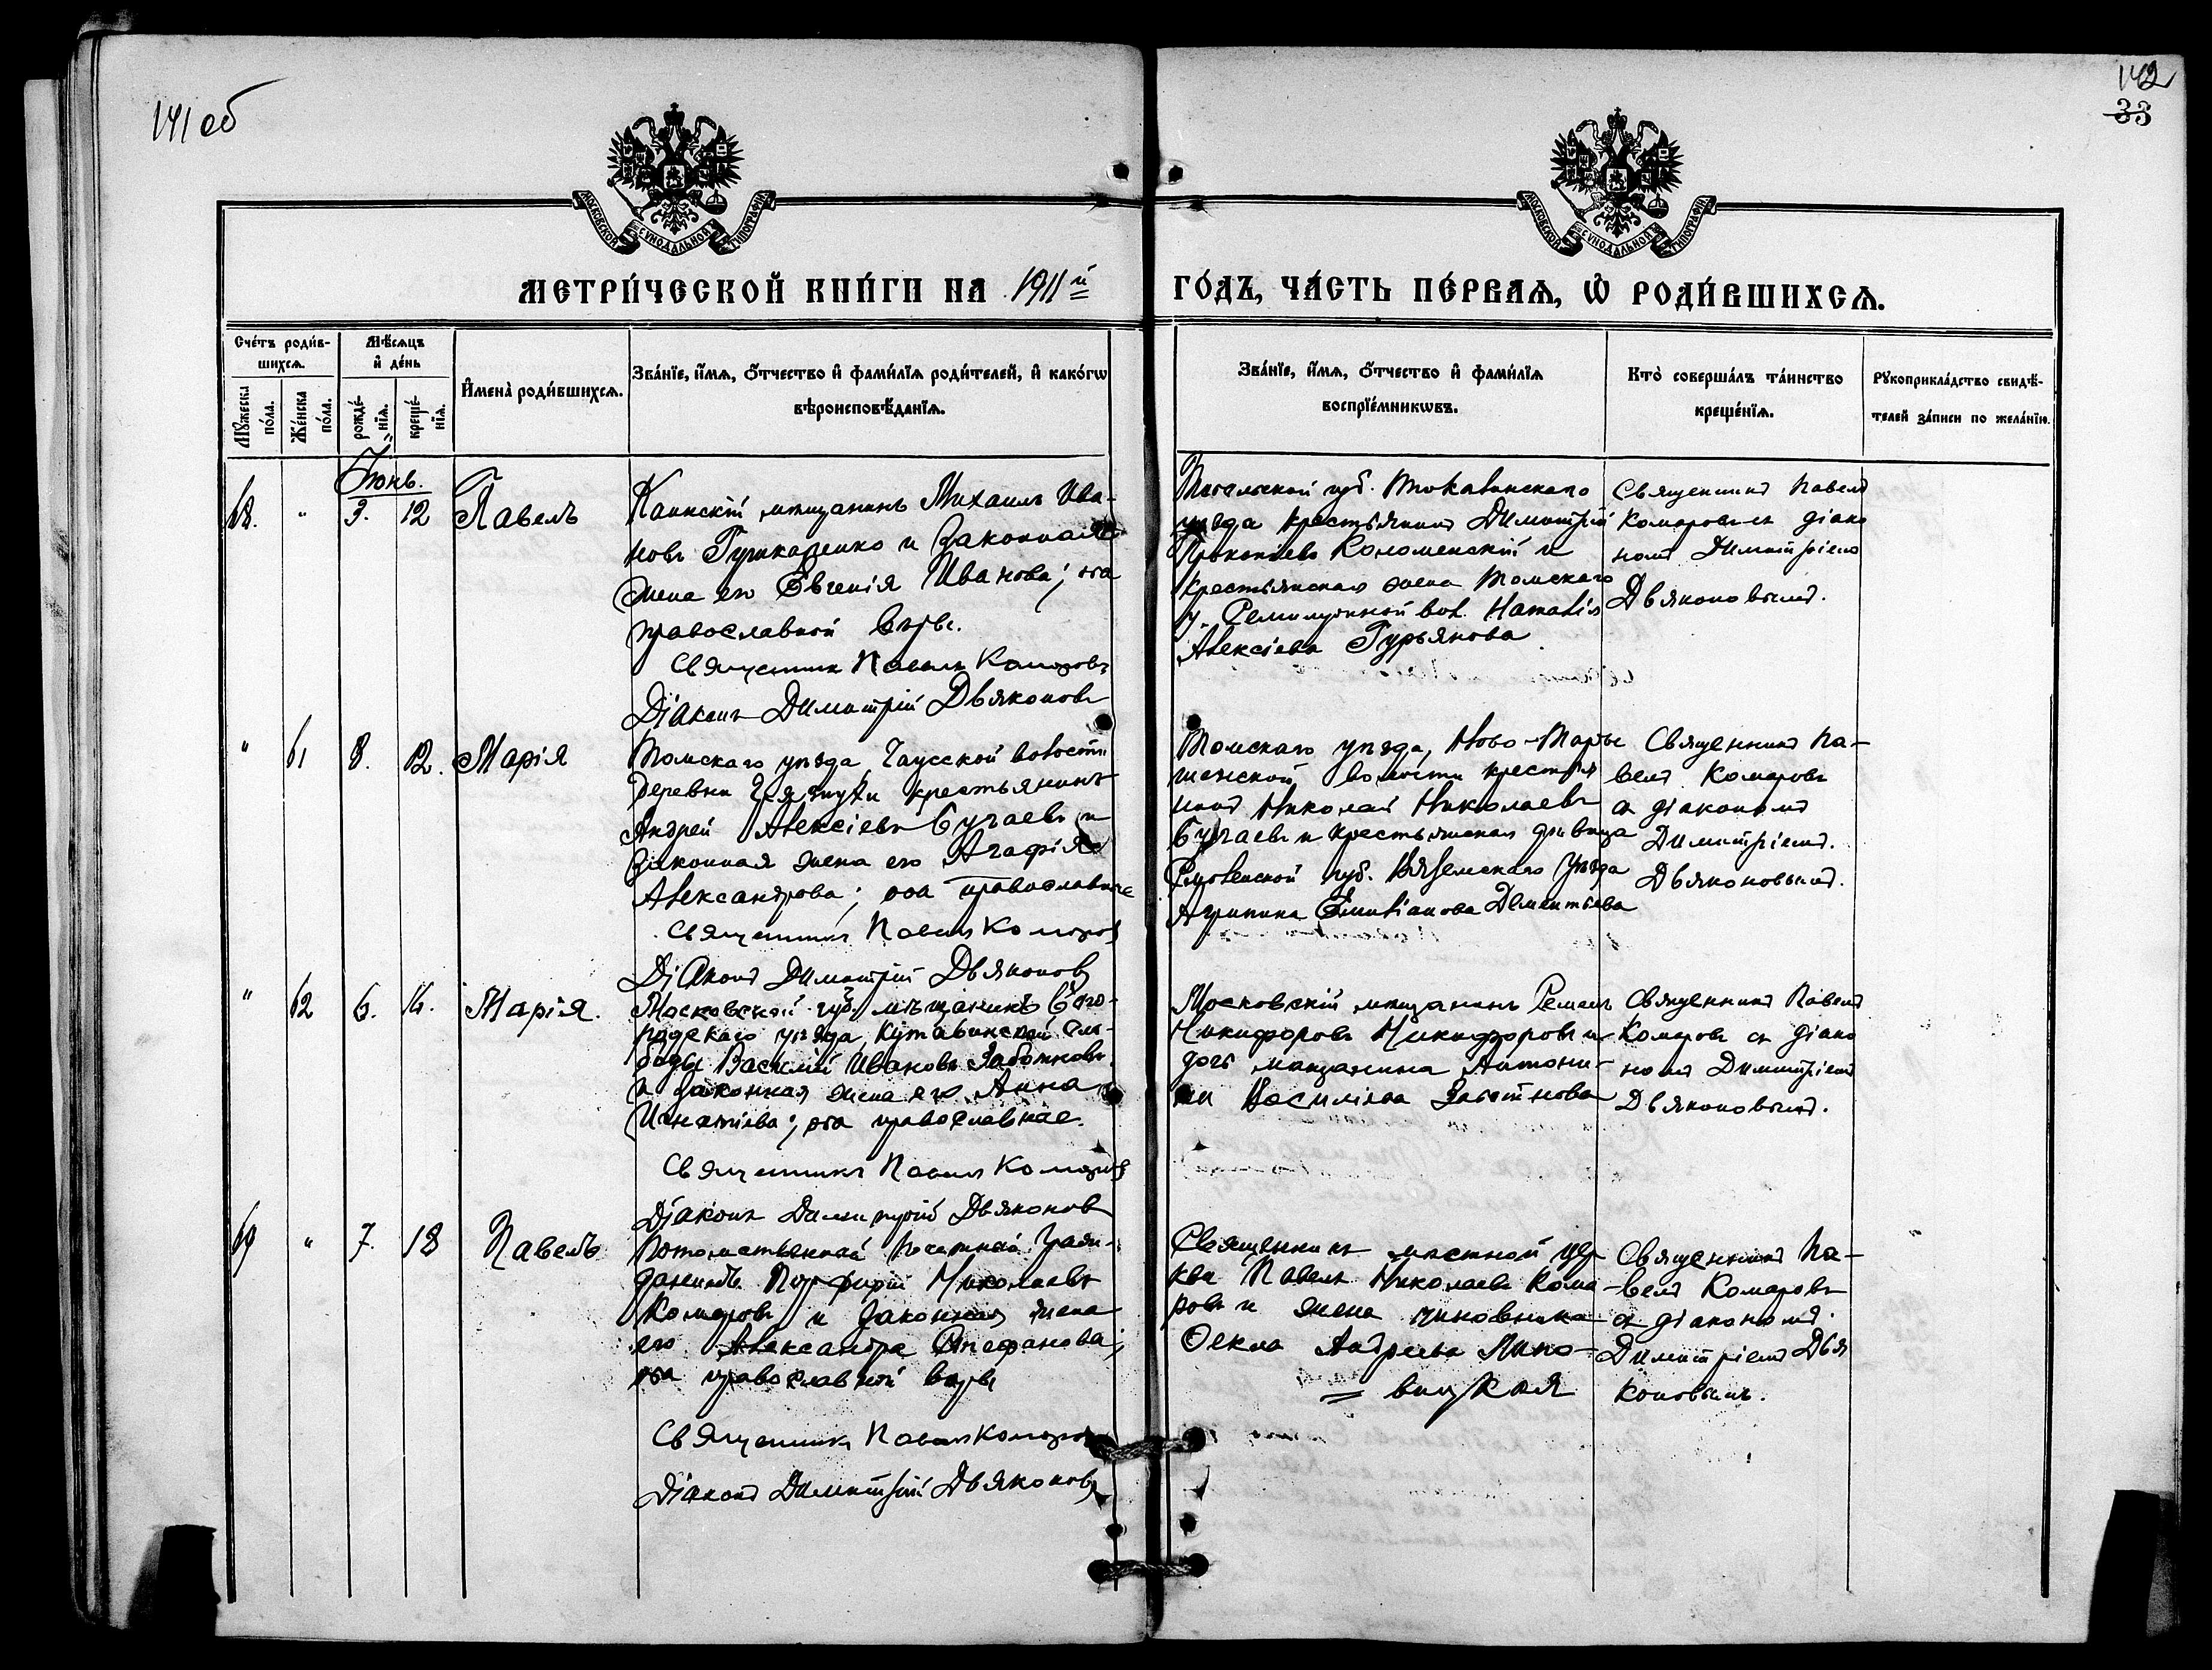 141 об
142
33
МОСКОВСКОЙ СѴНОДАЛЬНОЙ ТИПОГРАФІИ
МОСКОВСКОЙ СѴНОДАЛЬНОЙ ТИПОГРАФІИ
МЕТРИ́ЧЕСКОЙ КНИ́ГИ НА 1911й
ГО́ДЪ, ЧА́СТЬ ПЕ́РВАѦ, Ѡ҆ РОДИ́ВШИХСѦ.
Сче́тъ роди́в-
шихсѧ.
Мꙋ́жеска по́ла.
Же́нска по́ла.
Мѣ́сѧцъ
и҆ де́нь
рожде́-
нїѧ.
креще́-
нїѧ.
И҆мена̀ роди́вшихсѧ.
Зва́нїе, и҆́мѧ, ѻ҆́тчество и҆ фами́лїѧ роди́телей, и҆ како́гѡ
вѣроисповѣ́данїѧ.
Зва́нїе, и҆́мѧ, ѻ҆́тчество и҆ фами́лїѧ
воспрїе́мникѡвъ.
Кто̀ соверша́лъ та́инство
креще́нїѧ.
Рꙋкоприкла́дство свидѣ́-
телей за́писи по жела́нїю.
Іюнь.
68. " 3. 12 Павелъ
Каинскій мѣщанинъ Михаилъ Ива-
новъ и законная
жена его Евгенія Иванова; оба
православной вѣры.
Священникъ Павелъ Комаровъ
Діаконъ Димитрій Дьяконовъ
Тобольской губ. Тюкалинскаго
уѣзда крестьянинъ Димитрій
Прокопіевъ Коломенскій и
крестьянская жена Томскаго
у. Семилужной вол. Наталія
Алексіева Гурьянова
Священникъ Павелъ
Комаровъ съ діако
номъ Димитріемъ
Дьяконовымъ.
" 61 8. 12. Марія
Томскаго уѣзда, Чаусской волости
деревни крестьянинъ
Андрей Алексіевъ Бугаевъ и
законная жена его Агафія
Александрова; оба православные
Священникъ Павелъ Комаровъ
Діаконъ Димитрій Дьяконовъ
Томскаго уѣзда, Ново-Тарты
шенской волости крестья
нинъ Николай Николаевъ
Бугаевъ и крестьянская дѣвица
Смоленской губ. Вяземскаго уѣзда
Агрипина Емиліанова Дементьева
Священникъ Па-
велъ Комаровъ
съ діакономъ
Димитріемъ.
Дьяконовымъ.
" 62 6. 16. Марія.
Московской губ. мѣщанинъ Бого-
родскаго уѣзда, сло-
боды Василій Ивановъ Заботновъ
и законная жена его Анна
Игнатіева; оба православные.
Священникъ Павелъ Комаровъ
Діаконъ Димитрій Дьяконовъ
Московскій мѣщанинъ
Никифоровъ Никифоровъ и
дочь мѣщанина Антони-
на Василіева Заботнова
Священникъ Павелъ
Комаровъ съ діако
номъ Димитріемъ
Дьяконовымъ.
69 " 7. 18 Павелъ
Потомственный почетный граж-
данинъ Порфирій Николаевъ
Комаровъ и законная жена
его Александра Стефанова;
оба православной вѣры
Священникъ Павелъ Комаровъ
Діаконъ Димитрій Дьяконовъ
Священникъ мѣстной цер
кви Павелъ Николаевъ Кома
ровъ и жена чиновника
Ѳекла Андреева Лино-
= вицкая
Священникъ Па-
велъ Комаровъ
съ діакономъ.
Димитріемъ Дья
коновымъ.